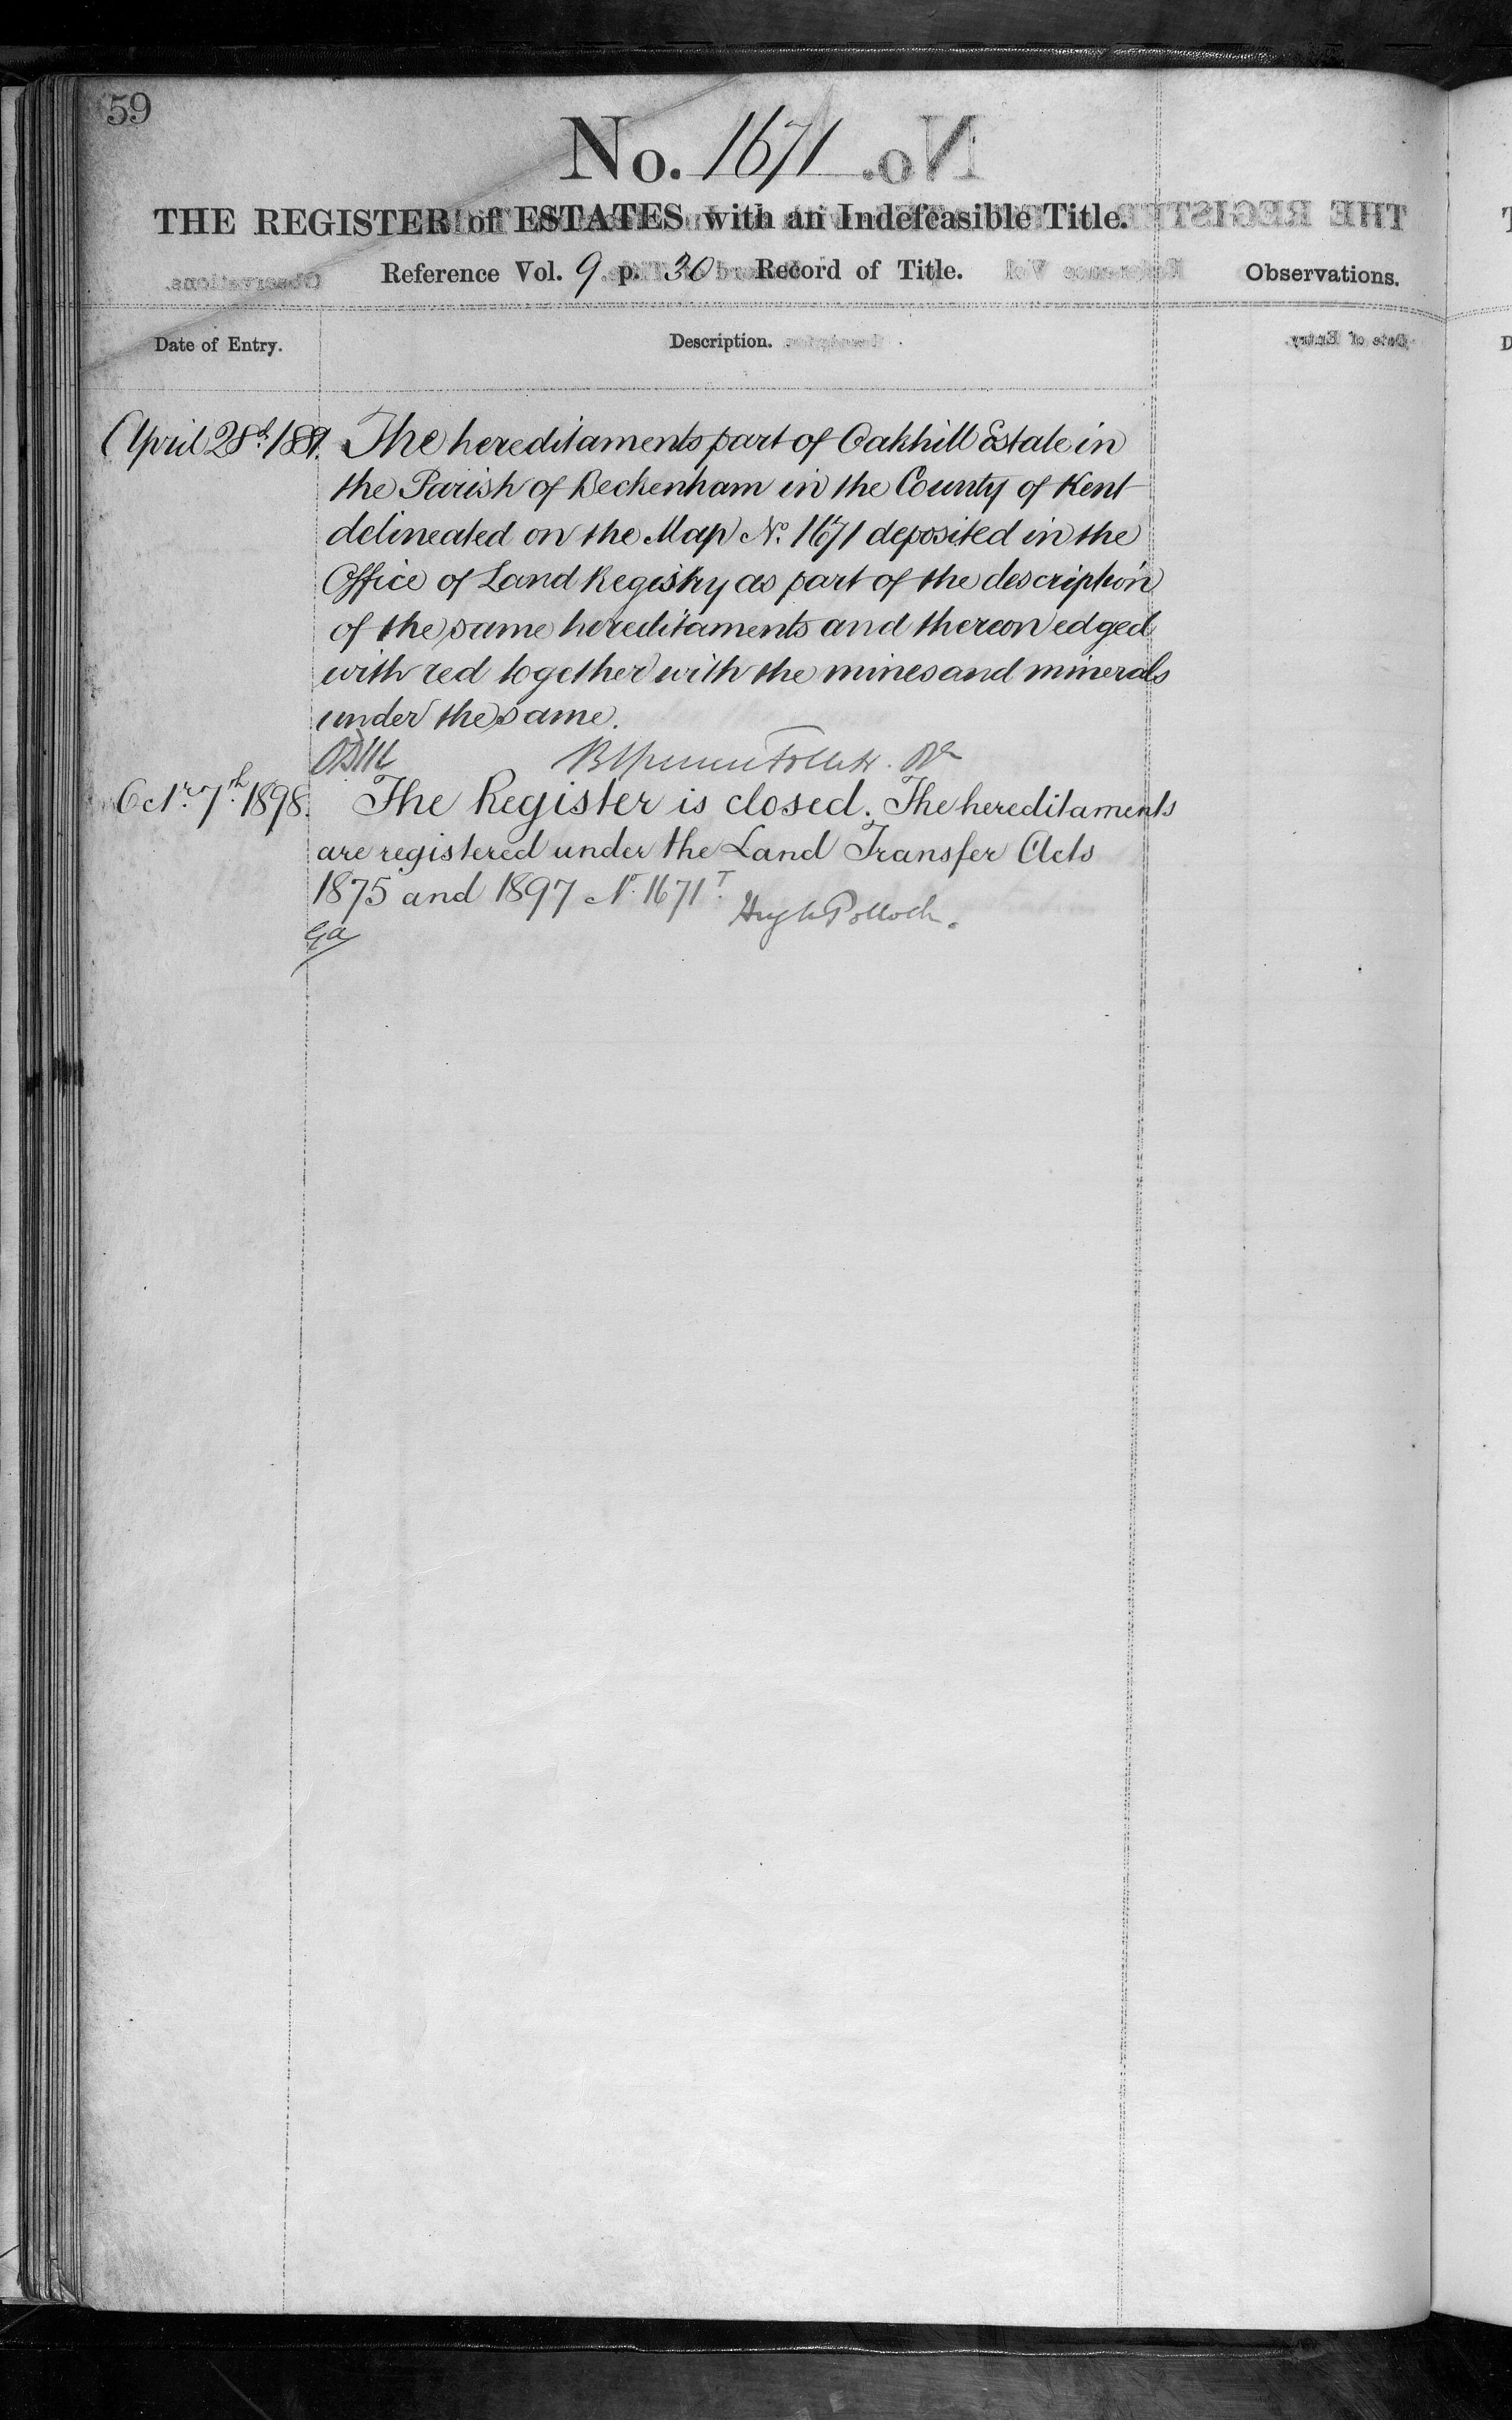 59
No. 1671
THE REGISTER of ESTATES with an Indefeasible Title.
Reference Vol. 9 p. 30 Record of Title.
Observations.
Date of Entry.
Description.
April 28th 1881. The hereditaments part of Oakhill Estate in
the Parish of Beckenham in the County of Kent
delineated on the Map No. 1671 deposited in the
Office of Land Registry as part of the description
of the same hereditaments and thereon edged
with red together with the mines and minerals
under the same.
Octr. 7th. 1898. The Register is closed. The hereditaments
are registered under the Land Transfer Acts
1875 and 1897 No. 1671T.
Hugh Pollock.